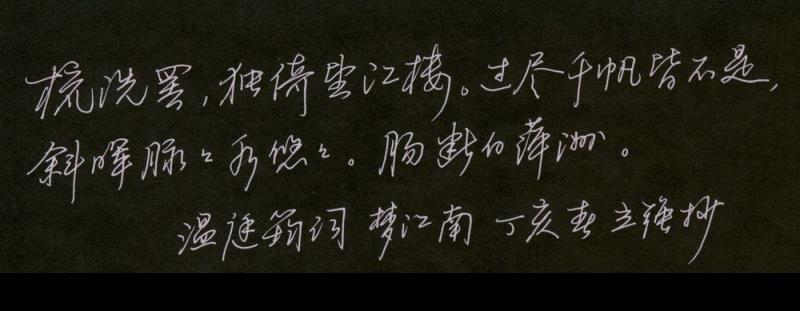 梳洗罢，独倚望江楼。过尽千帆皆不是，
斜晖脉々水悠々。肠断白萍洲。
温廷筠词 梦江南 丁亥春 立强抄